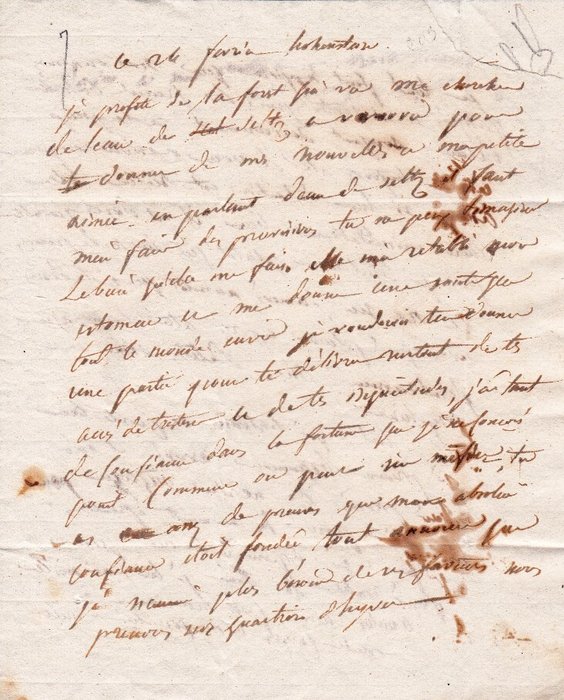 ce 26 fevrier hohenstein
je profite de la forst qui va me chercher
de l'eau de Seltz a pour
te donner de mes nouvelles a ma petite
aimée en parlant d'eau de seltz il faut
m'en faire des provisions tu ne peux t'imaginer
Le bien qu'elle me fait Elle m'a retabli mon
estomac et me donne une santé que
tout le monde envie je voudrois te donner
une partie pour te délivrer surtout de tes
accés de tristesse et de tes inquietudes, j'ai tant
de confiance dans la fortune que je ne conçois
point Comme on peut s'en méfier, tu
as de preuves que mon absolue
confiance étoit fondée tout annonce que
je n'aurai plus besoin de ses faveurs nous
prenons nos quartiers d'hyver